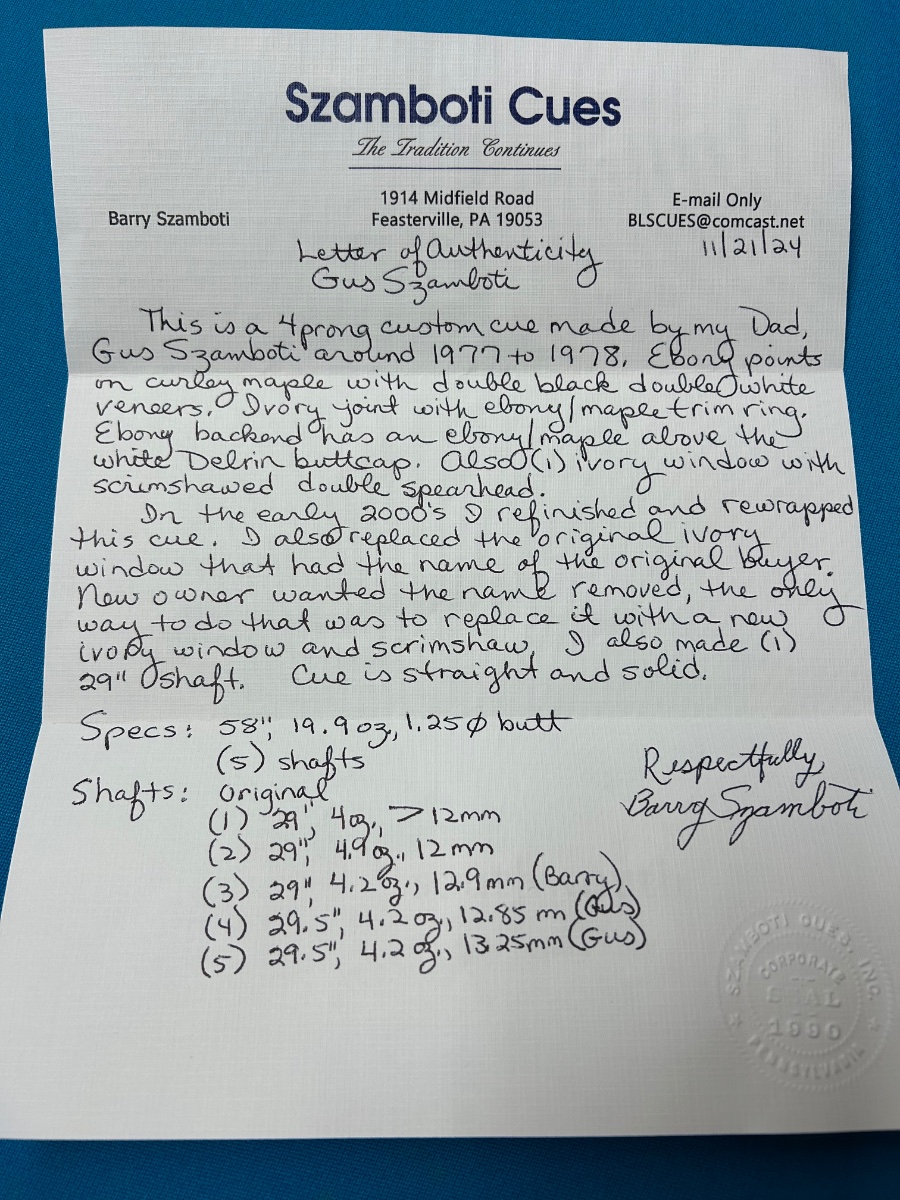 Szamboti Cues
The Tradition Continues
Barry Szamboti
1914 Midfield Road
Feasterville, PA 19053
E-mail Only
BLSCUES@comcast.net
11/21/24
Letter of Authenticity
Gus Szamboti
This is a 4 prong custom cue made by my Dad,
Gus Szamboti around 1977 to 1978. Ebony points
on curley maple with double black double white
veneers. Ivory joint with ebony/maple trim ring.
Ebony backend has an ebony/maple above the
white Delrin buttcap. Also (1) ivory window with
scrimshawed double spearhead.
In the early 2000's I refinished and rewrapped
this cue. I also replaced the original ivory
window that had the name of the original buyer.
New owner wanted the name removed, the only
way to do that was to replace it with a new
ivory window and scrimshaw. I also made (1)
29" shaft. Cue is straight and solid.
Specs: 58", 19.9 oz., 1.25 ø butt
(5) shafts
Shafts: original
(1) 29", 4oz., > 12mm
(2) 29", 4.9 oz., 12mm
(3) 29", 4.2 oz., 12.9mm (Barry)
(4) 29.5", 4.2 oz., 12.85 m (Gus)
(5) 29.5", 4.2 oz., 13.25mm (Gus)
Respectfully,
Barry Szamboti
SZAMBOTI CUES, INC.
CORPORATE
SEAL
1990
PENNSYLVANIA